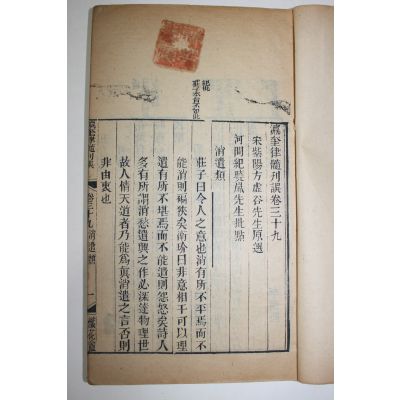 瀛奎律髓刊誤卷三十九
宋紫陽方虛谷先生原選
河間紀曉嵐先生批點
消遣類
莊子曰令人之意也消有所不平焉而不
能消則褊狹矣南
曰非意相干可以理
遣有所不堪焉而不能遣則怨怒矣詩人
多有所謂消愁遣興之作必深達物理世
故人情天道者乃能爲眞消遣之言否則
非由衷也
瀛奎律髓刊誤
卷三十九消遣類
一